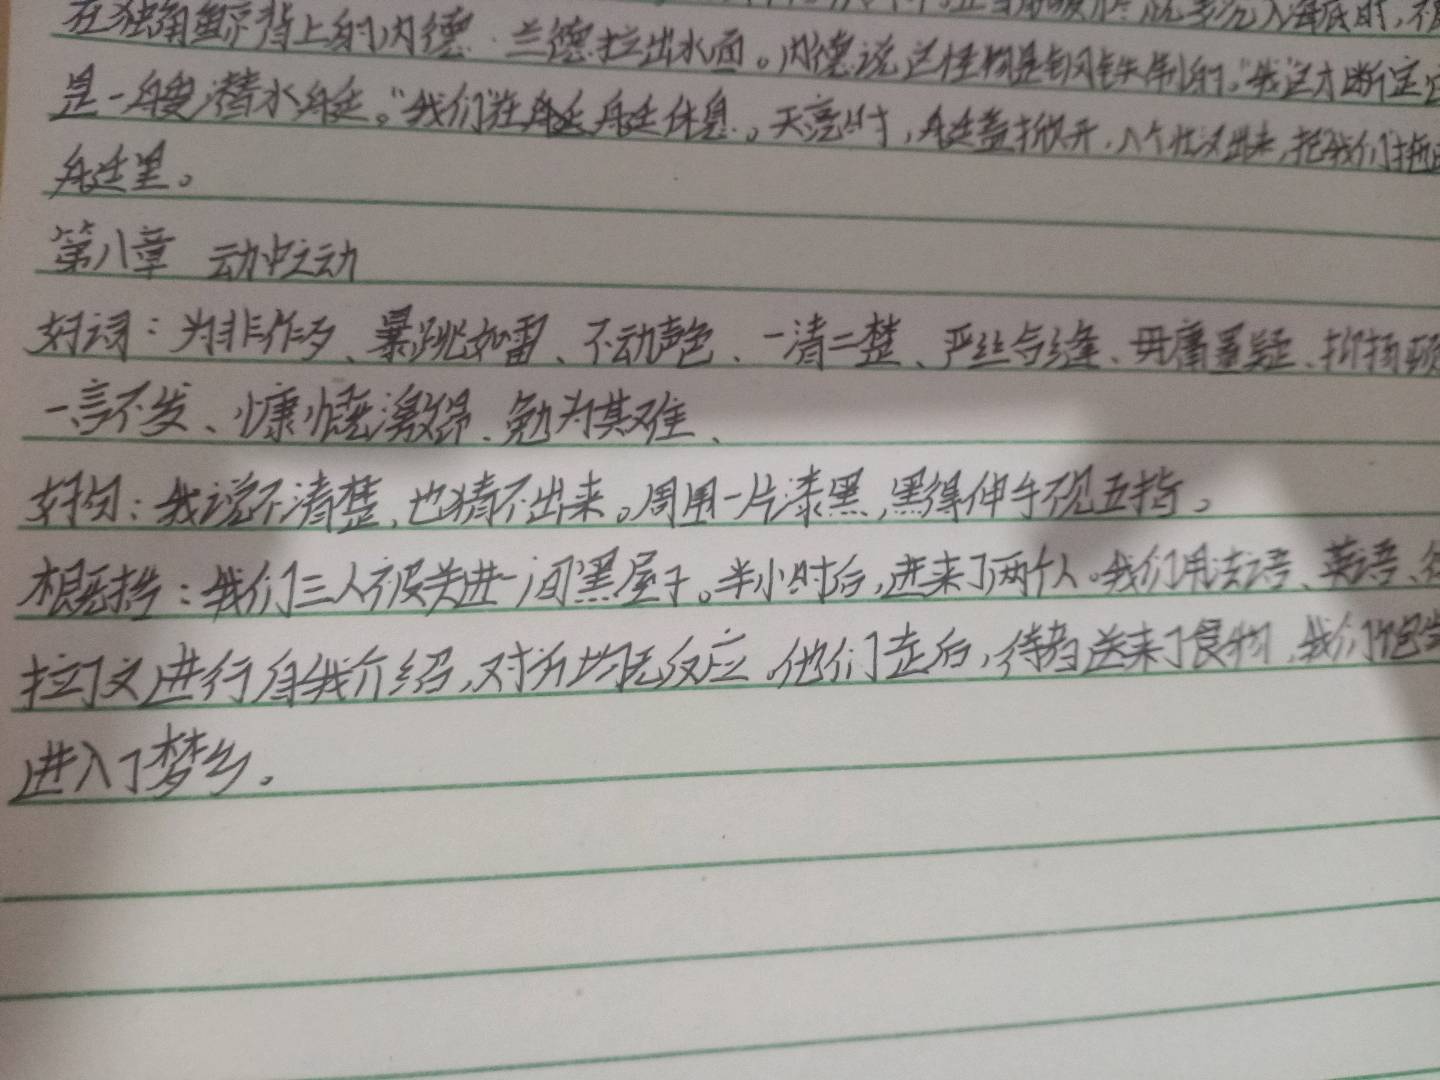 在独角鲸背上的内德·兰德拉出水面。内德说这怪物是钢铁制的。"我"这才断定它
是一艘潜水艇。"我们"在艇休息。天亮时,舱盖掀开,八个壮汉出来,把我们拖进
舱里。
第八章 动中之动
好词:为非作歹、暴跳如雷、不动声色、一清二楚、严丝合缝、毋庸置疑、抑扬顿
一言不发、慷慨激昂、勉为其难、
好句:我说不清楚,也猜不出来。周围一片漆黑,黑得伸手不见五指。
概括:我们三人被关进一间黑屋子。半小时后,进来了两个人。我们用法语、英语、
拉丁文进行自我介绍,对方均无反应。他们走后,侍者送来了食物,我们饱
进入了梦乡。